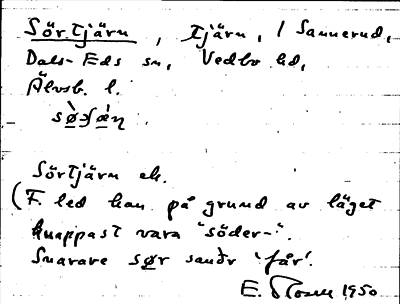 Sörtjärn, tjärn, i Sannerud,
Dals-Eds sn, Vedbo hd,
Älvsb. l.
Sörtjärn ek.
(F. led kan på grund av läget
knappast vara "söder-".
Snarare sør 'får'.
E. 1950